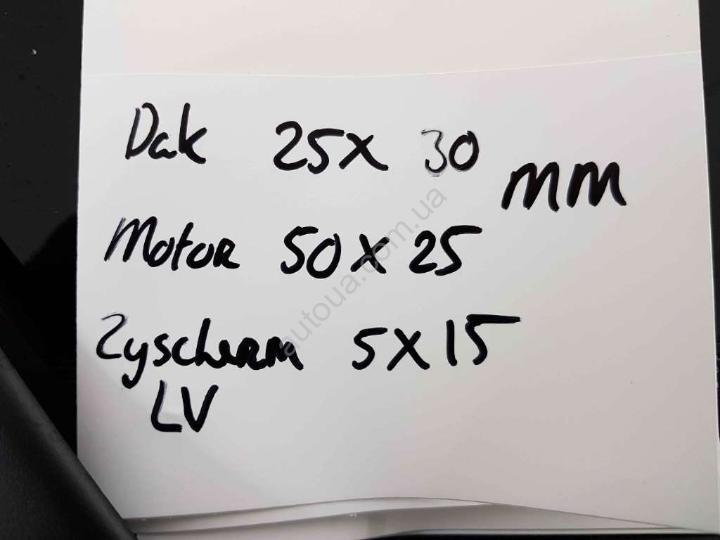 Dak 25x 30
mm
Motor 50 x 25
Zyscherm 5x15
LV
autoua.com.ua